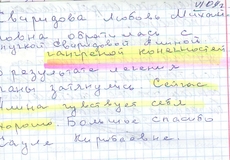 Свиридова Любовь Михай-
ловна обратилась с
внучкой Свиридовой Алиной
гангреной конечностей
В результате лечения
раны затянулись Сейчас
Алина чувствует себя
хорошо. Большое спасибо
Сауле Каирбаевне.